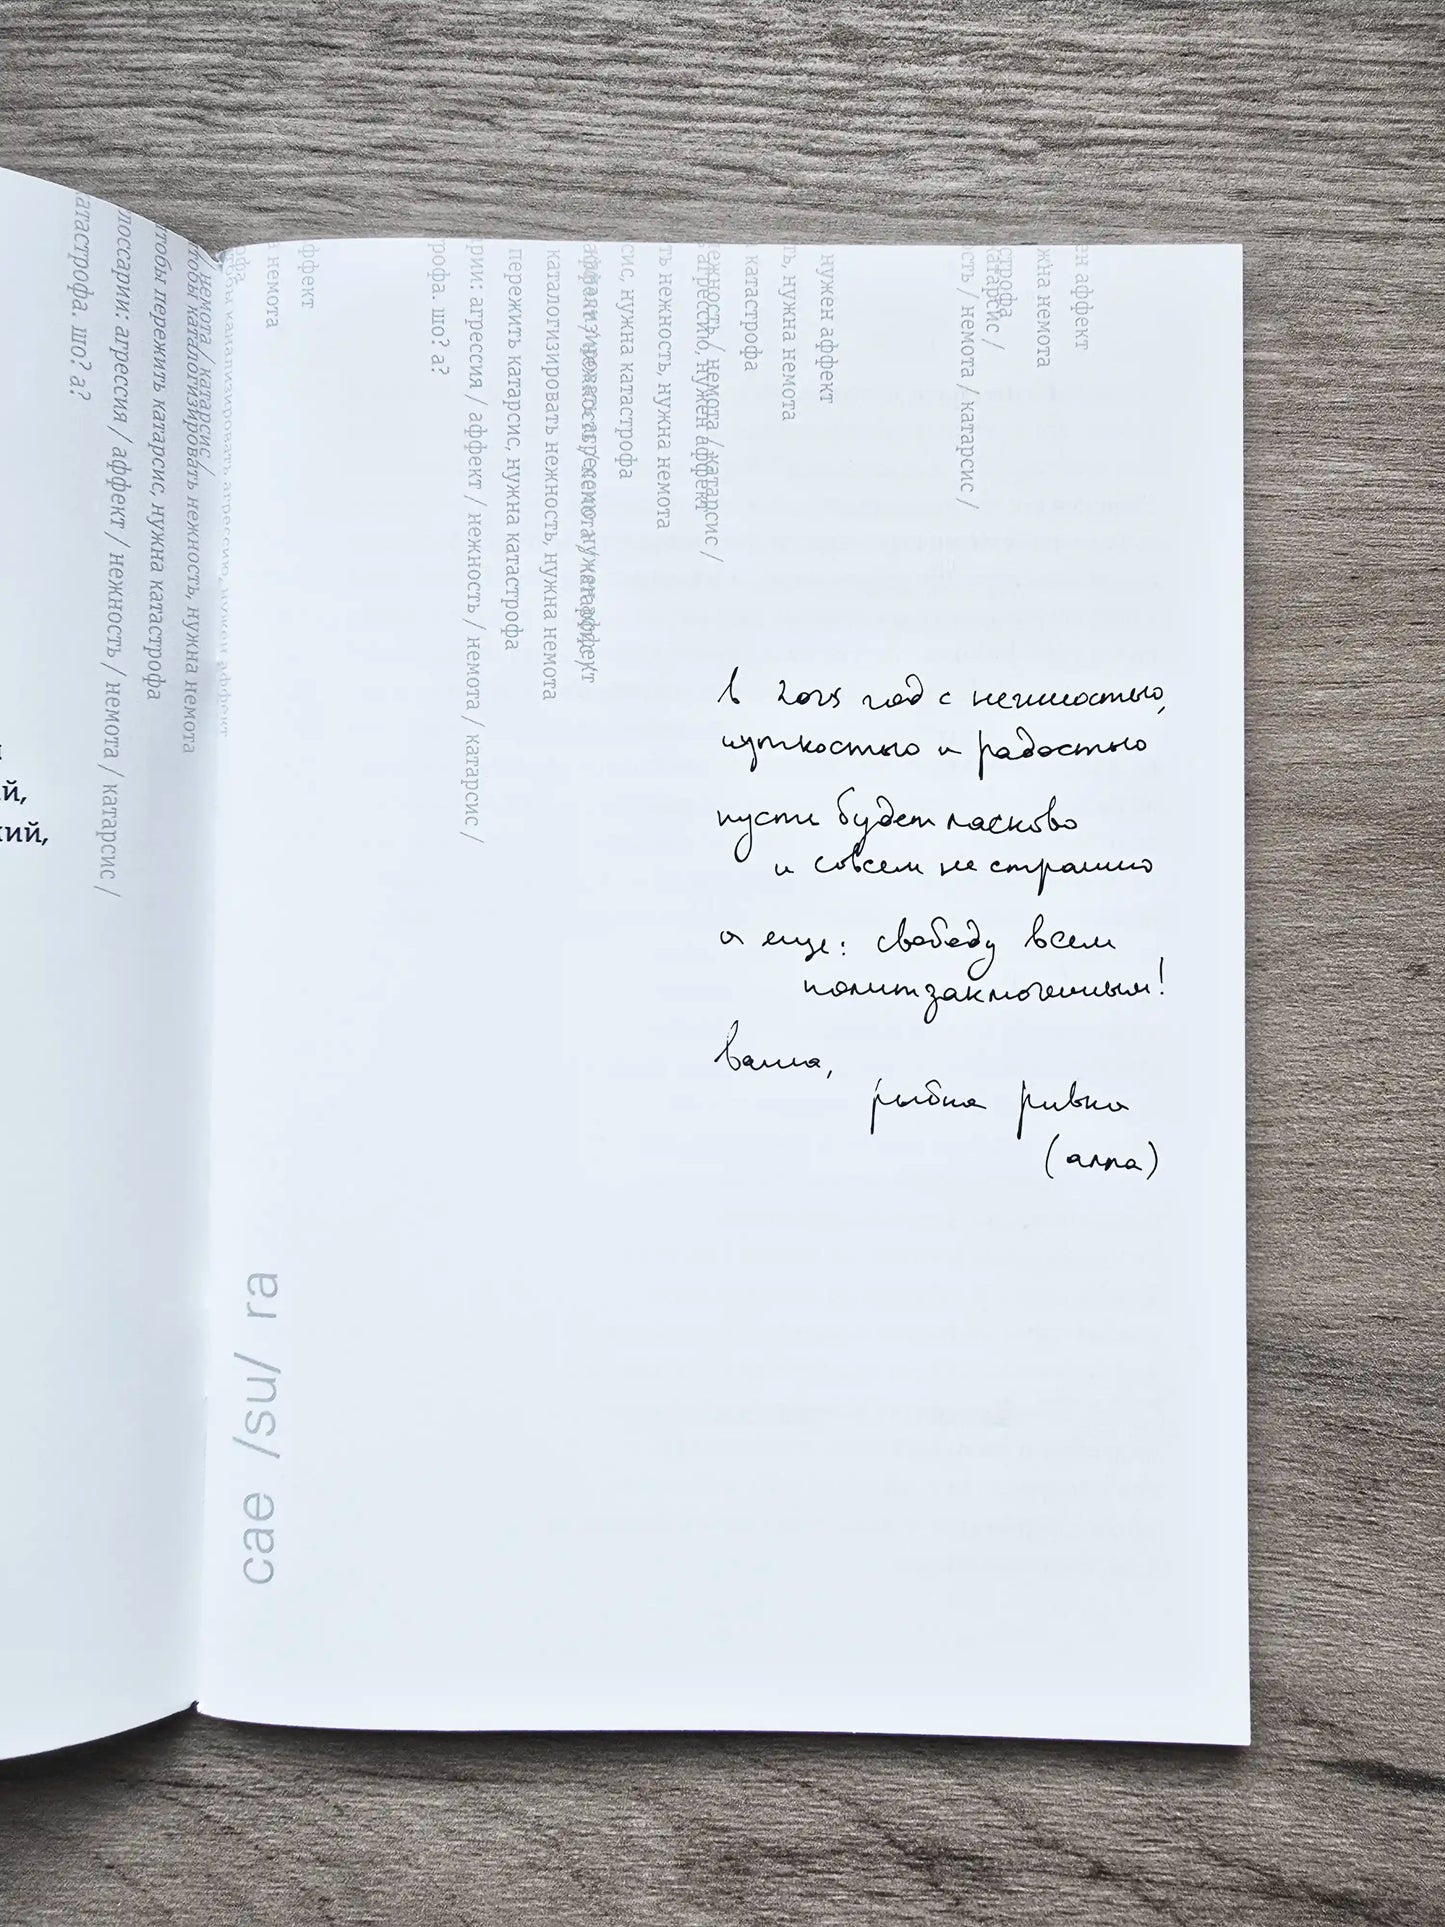 й,
кий,
катастрофа. шо? а?
глоссарии: агрессия / аффект / нежность / немота / катарсис /
чтобы пережить катарсис, нужна катастрофа
чтобы каталогизировать нежность, нужна немота
немота / катарсис /
канализировать агрессию, нужен аффект
а немота
аффект
рофа. шо? а?
рии: агрессия / аффект / нежность / немота / катарсис /
пережить катарсис, нужна катастрофа
каталогизировать нежность, нужна немота
канализировать агрессию, нужен аффект
аффект / нежность / немота / катарсис /
сис, нужна катастрофа
ть нежность, нужна немота
ь агрессию, нужен аффект
нежность / немота / катарсис /
катастрофа
ть, нужна немота
нужен аффект
ость / немота / катарсис /
катарсис /
строфа
жна немота
ен аффект
в 2025 год с нежностью,
чуткостью и радостью
пусть будет ласково
и совсем не страшно
а еще: свободу всем
политзаключенным!
ваша,
рыбка ривка
(алла)
cae /su/ ra